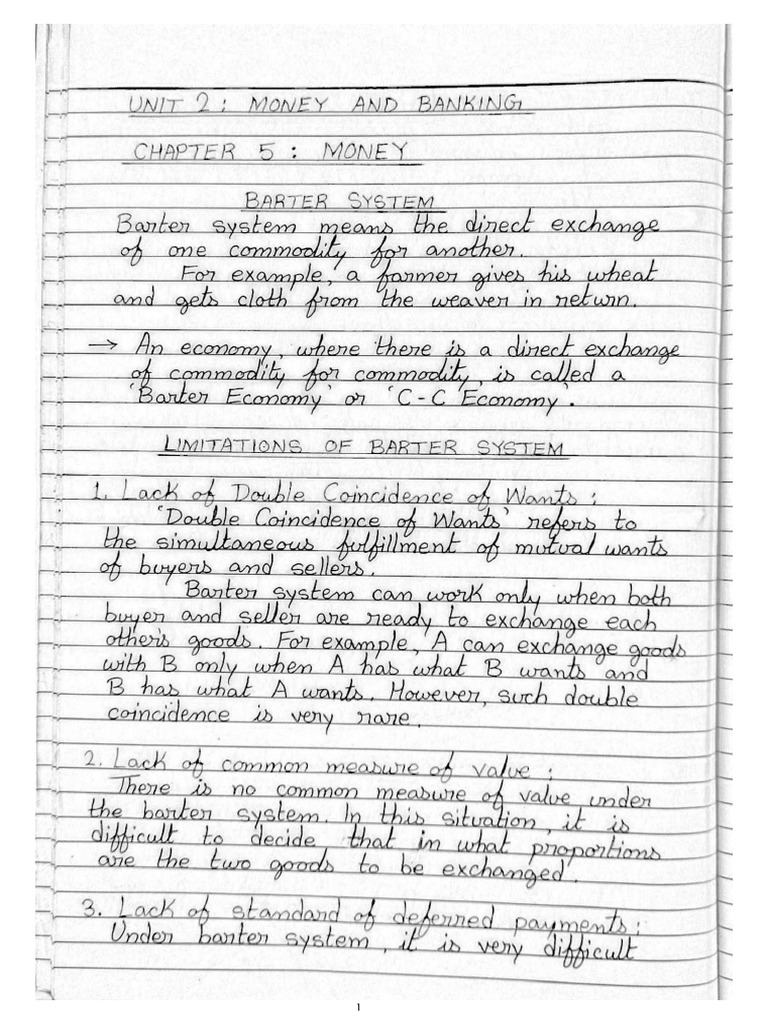 UNIT 2 : MONEY AND BANKING
CHAPTER 5 : MONEY
BARTER SYSTEM
Barter system means the direct exchange
of one commodity for another.
For example, a farmer gives his wheat
and gets cloth from the weaver in return.
→ An economy, where there is a direct exchange
of commodity for commodity, is called a
'Barter Economy' or 'C-C Economy'.
LIMITATIONS OF BARTER SYSTEM
1. Lack of Double Coincidence of Wants :
'Double Coincidence of Wants' refers to
the simultaneous fulfillment of mutual wants
of buyers and sellers.
Barter system can work only when both
buyer and seller are ready to exchange each
other's goods. For example, A can exchange goods
with B only when A has what B wants and
B has what A wants. However, such double
coincidence is very rare.
2. Lack of common measure of value :
There is no common measure of value under
the barter system. In this situation, it is
difficult to decide that in what proportions
are the two goods to be exchanged.
3. Lack of standard of deferred payments :
Under barter system, it is very difficult
1